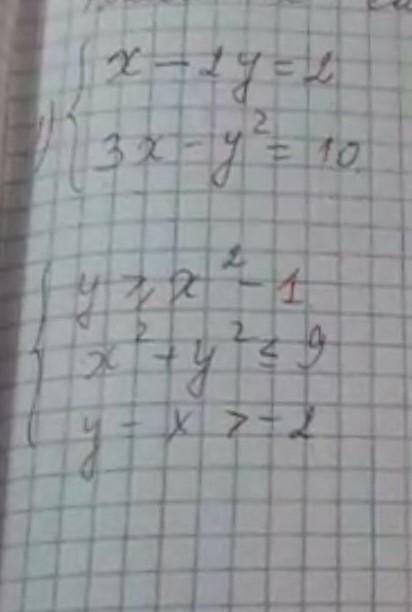 x - 2y = 2
1) 3x - y² = 10.
y ≥ x² - 1
x² + y² ≤ 9
y - x > -2